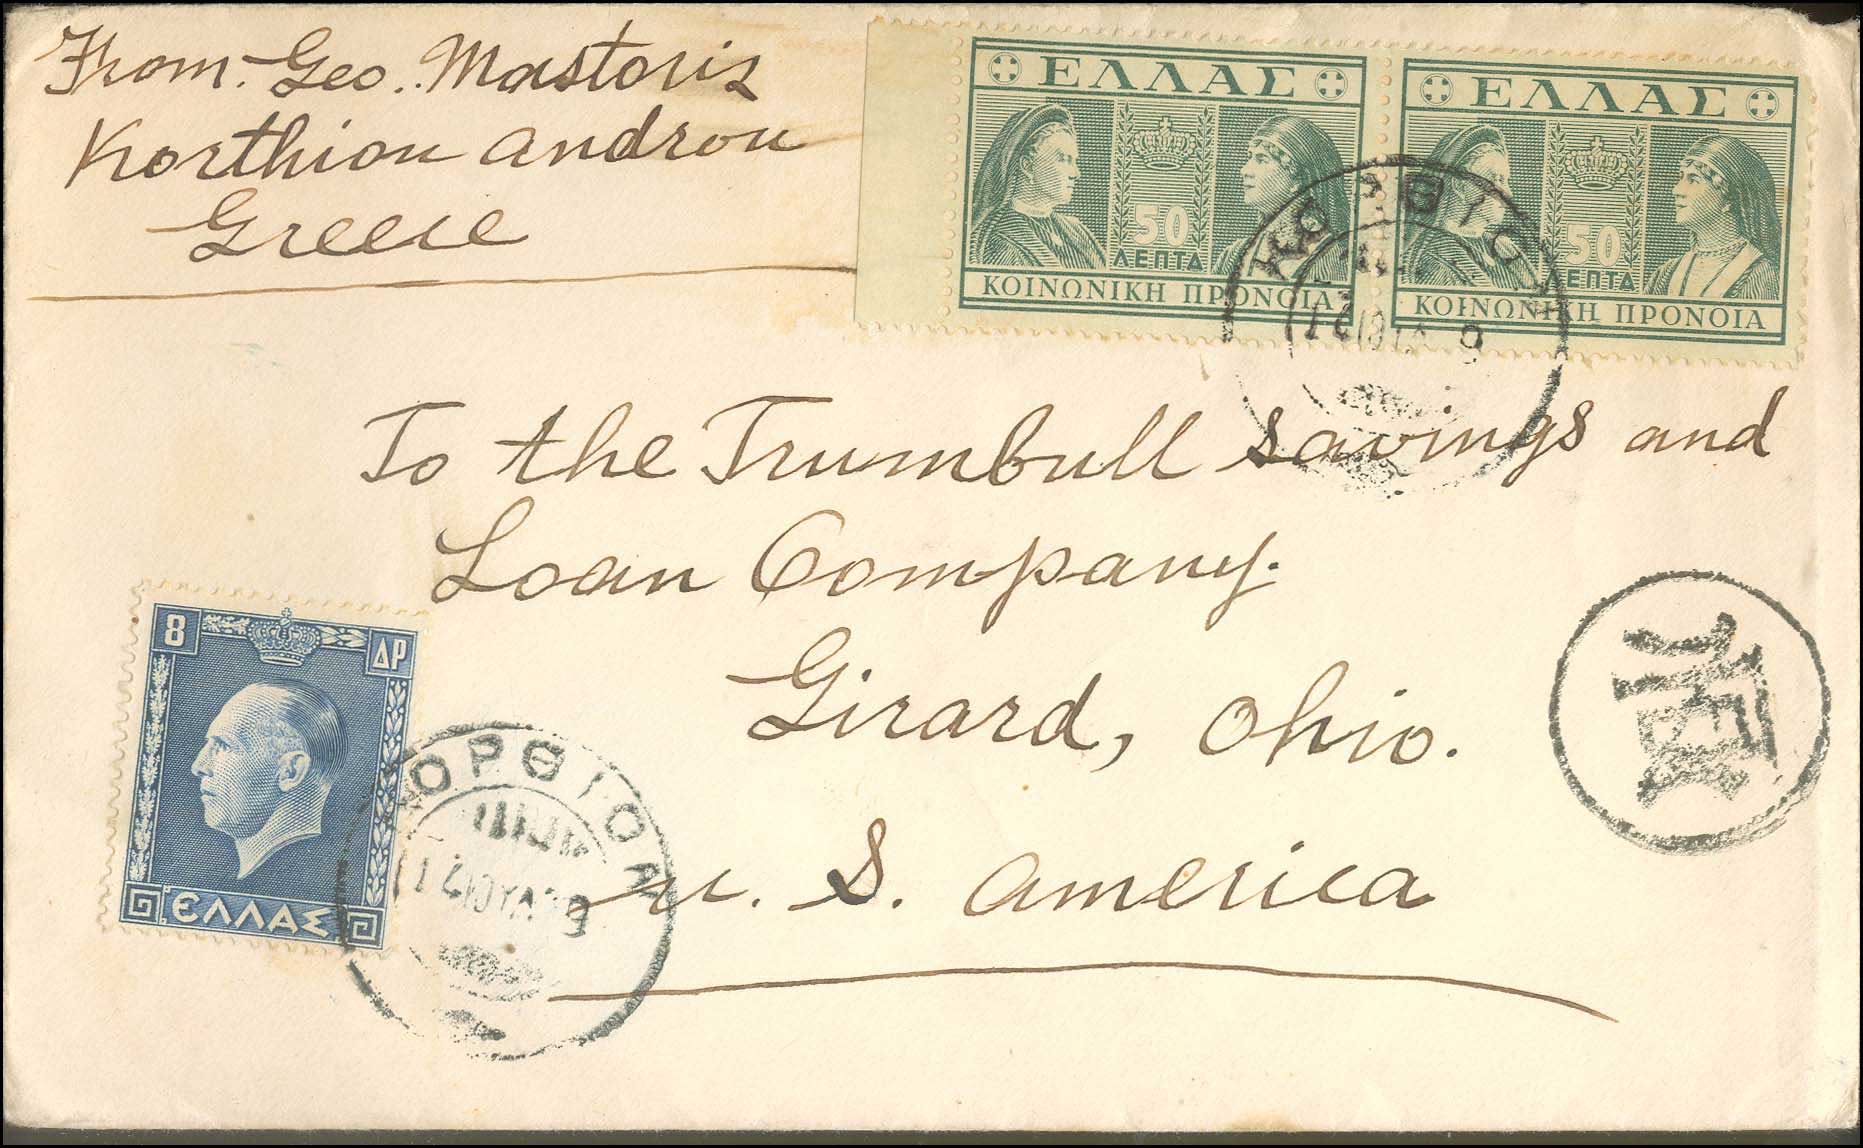 From. Geo. Mastoris
Korthion Androu
Greece
ΕΛΛΑΣ
50
ΛΕΠΤΑ
ΚΟΙΝΩΝΙΚΗ ΠΡΟΝΟΙΑ
ΕΛΛΑΣ
50
ΛΕΠΤΑ
ΚΟΙΝΩΝΙΚΗ ΠΡΟΝΟΙΑ
ΚΟΡΘΙΟ
To the Trumbull Savings and
Loan Company.
Girard, Ohio.
U. S. America
8 ΔΡ
ΕΛΛΑΣ
ΚΟΡΘΙΟΝ